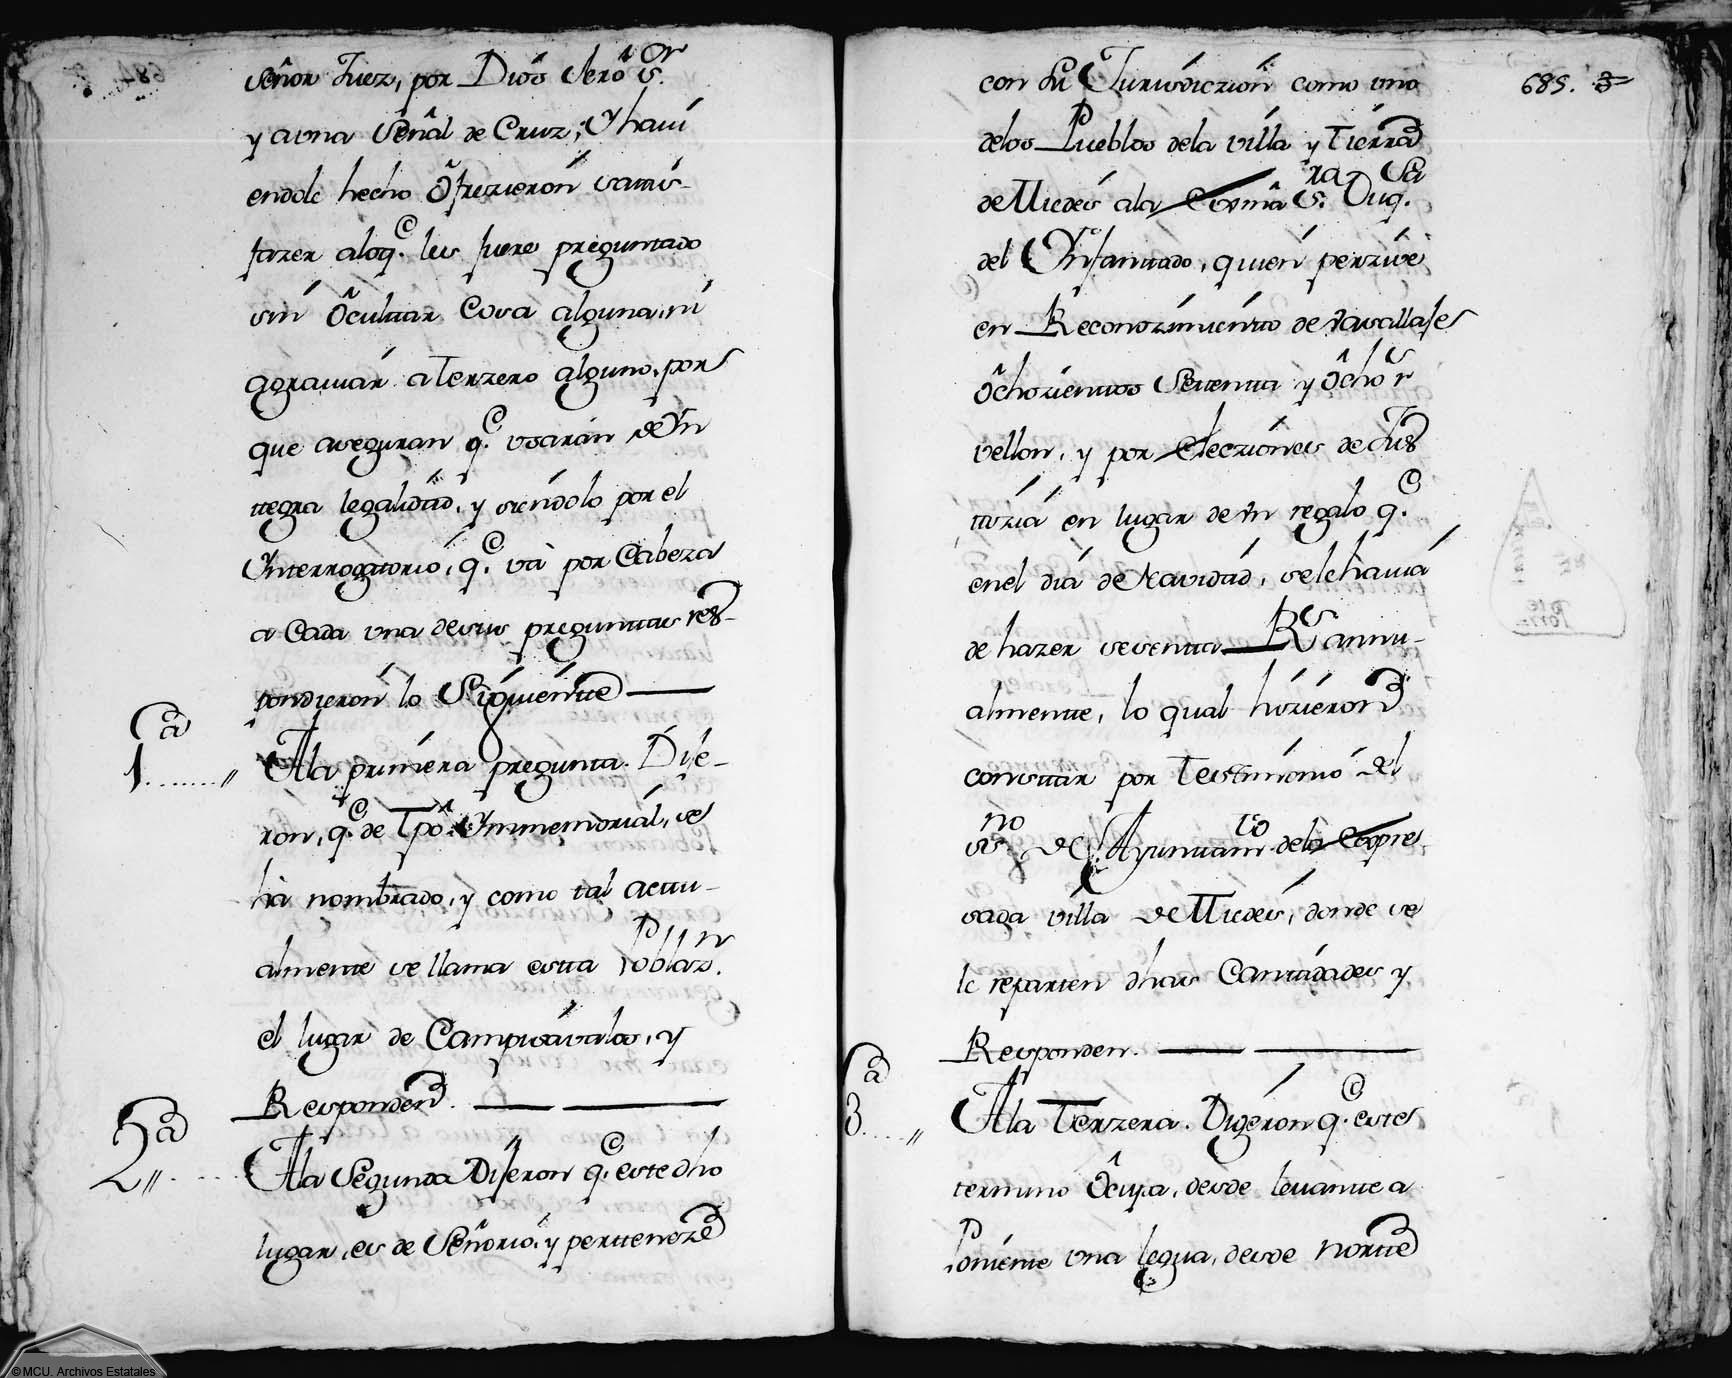 Señor Juez, por Dios Nrô S.or
y a vna Señal de Cruz; Y havi
endole hecho ôfrezieron Satis-
fazer alo q.e les fuere preguntado
sin ôcultar Cosa alguna, ni
agraviar a Terzero alguno, por
que aseguran q.e vsarán de Yn
ttegra legalidad, y siendolo por el
Ynterrogatorio, q.e vá por Cabeza
a Cada vna desus preguntas res-
pondieron lo Siguiente
1.a A la primera pregunta. Dije-
ron, q.e de Tpô Ymmemorial, se
ha nombrado, y como tal acttu-
almente se llama esta Poblaz.n
el lugar de Campisavalos, y
Responden.
2.a A la Segunda Dijeron q.e este dho
lugar, es de Señorio, y pertteneze
685. 3
con su Jurisdiczion como vno
delos Pueblos dela villa y Tierra
de Miedes ala Exmâ S.ra Duq.sa
del Ynfantado, quien perzive
en Reconozimiento de vasallaje
ôchozientos Setenta y ôcho r.s
vellon, y por elecziones de Jus
ttizia en lugar de vn regalo q.e
enel dia de Navidad, sele havia
de hazer sesenta R.s annu-
almente, lo qual hizieron
constar por Testimonio del
ss.no de Ayuntam.to dela Expre
sada villa de Miedes, donde se
le reparten dhas Cantidades y
Responden.
3.a A la Terzera. Digeron q.e este
termino ôcupa, desde levante a
Poniente vna legua, desde nortte
©MCU. Archivos Estatales